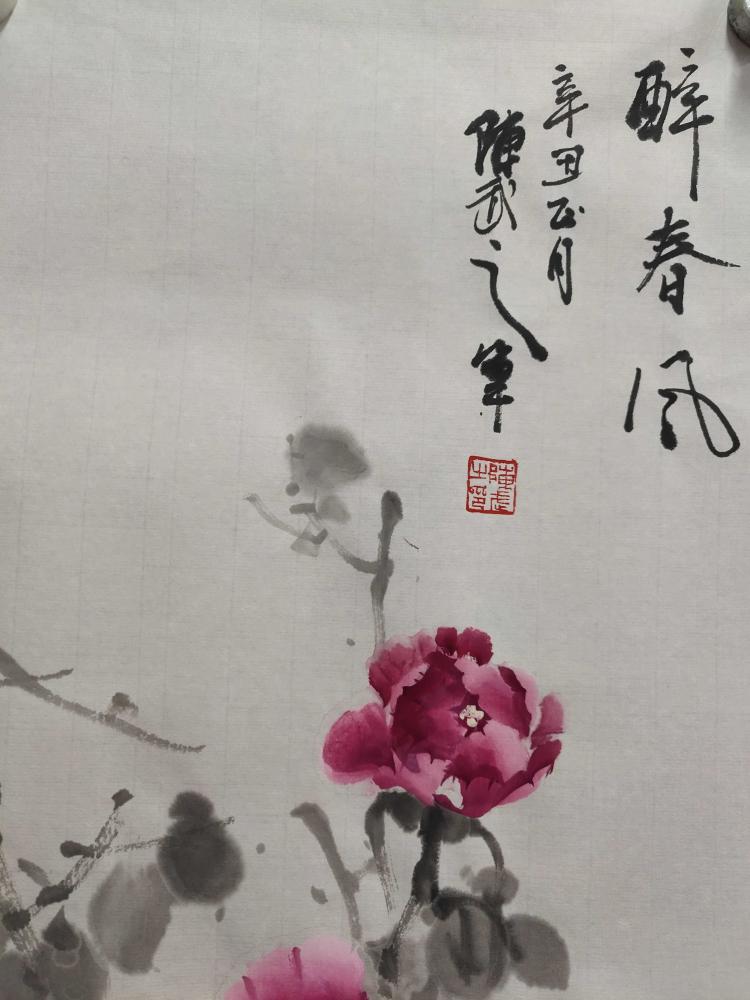 醉春风
辛丑正月
陳武之筆
陳武之印